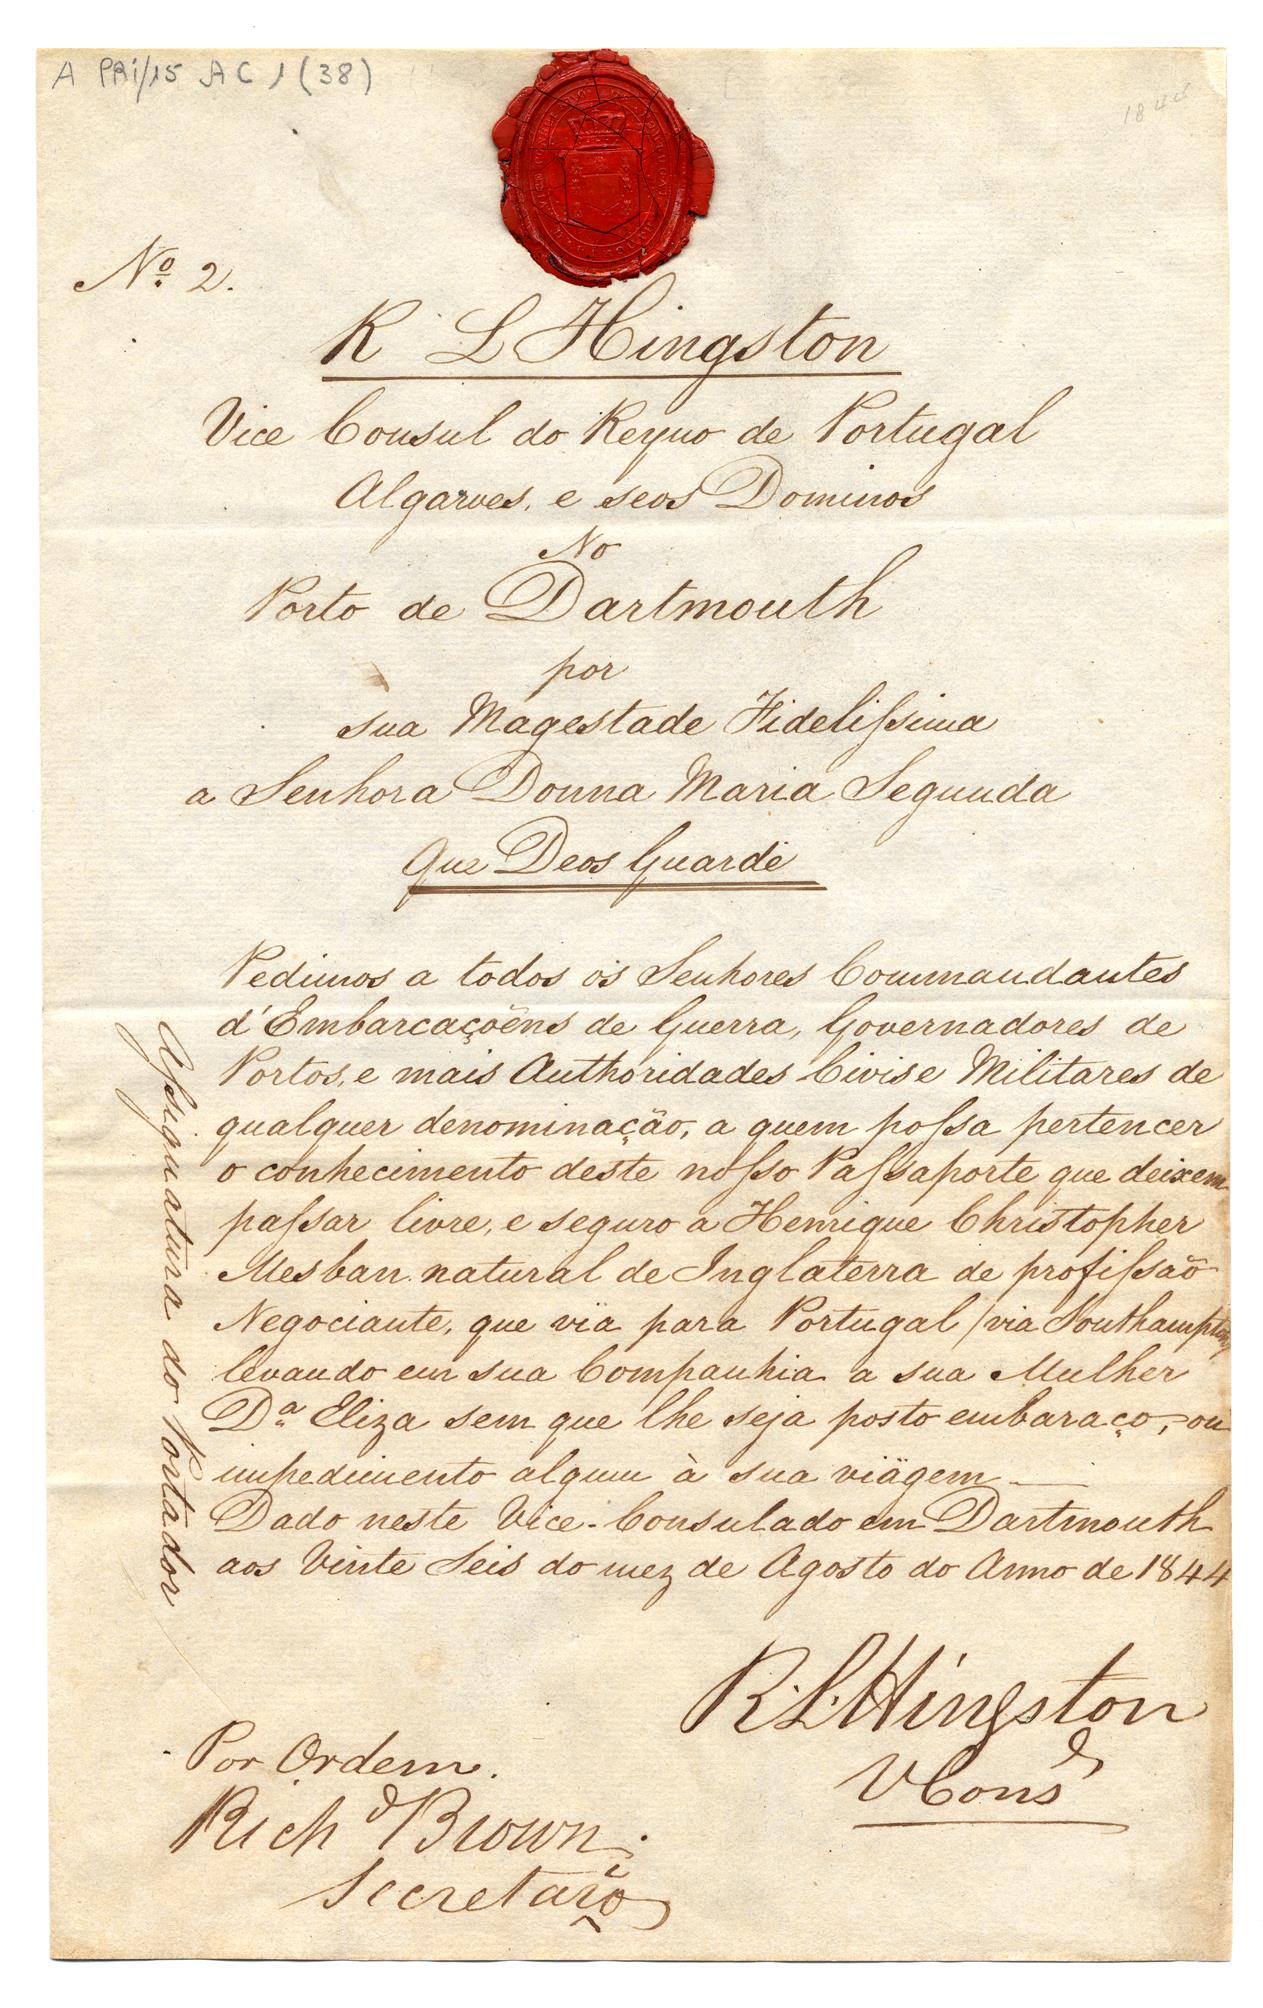 A PRI/15 A C 1 (38)
1844
Nº 2.
R L Hingston
Vice Consul do Reyno de Portugal
Algarves, e seos Dominos
No
Porto de Dartmouth
por
sua Magestade Fidelissima
a Senhora Donna Maria Segunda
Que Deos Guarde
Pedimos a todos os Senhores Commandantes
d'Embarcaçoēns de Guerra, Governadores de
Portos, e mais Authoridades Civis e Militares de
qualquer denominação, a quem possa pertencer
o conhecimento deste nosso Passaporte que deixem
passar livre, e seguro a Henrique Christopher
Mesban natural de Inglaterra de profissaõ
Negociante, que vïa para Portugal /via Southampton/
levando em sua Companhia a sua Mulher
Dª Eliza sem que lhe seja posto embaraço, ou
impedimento algum à sua viägem
Dado neste Vice-Consulado em Dartmouth
aos Vinte Seis do mez de Agosto do Anno de 1844
Assignatura do Portador
R. L. Hingston
V Cons
Por Ordem.
Richd Brown.
Secretario